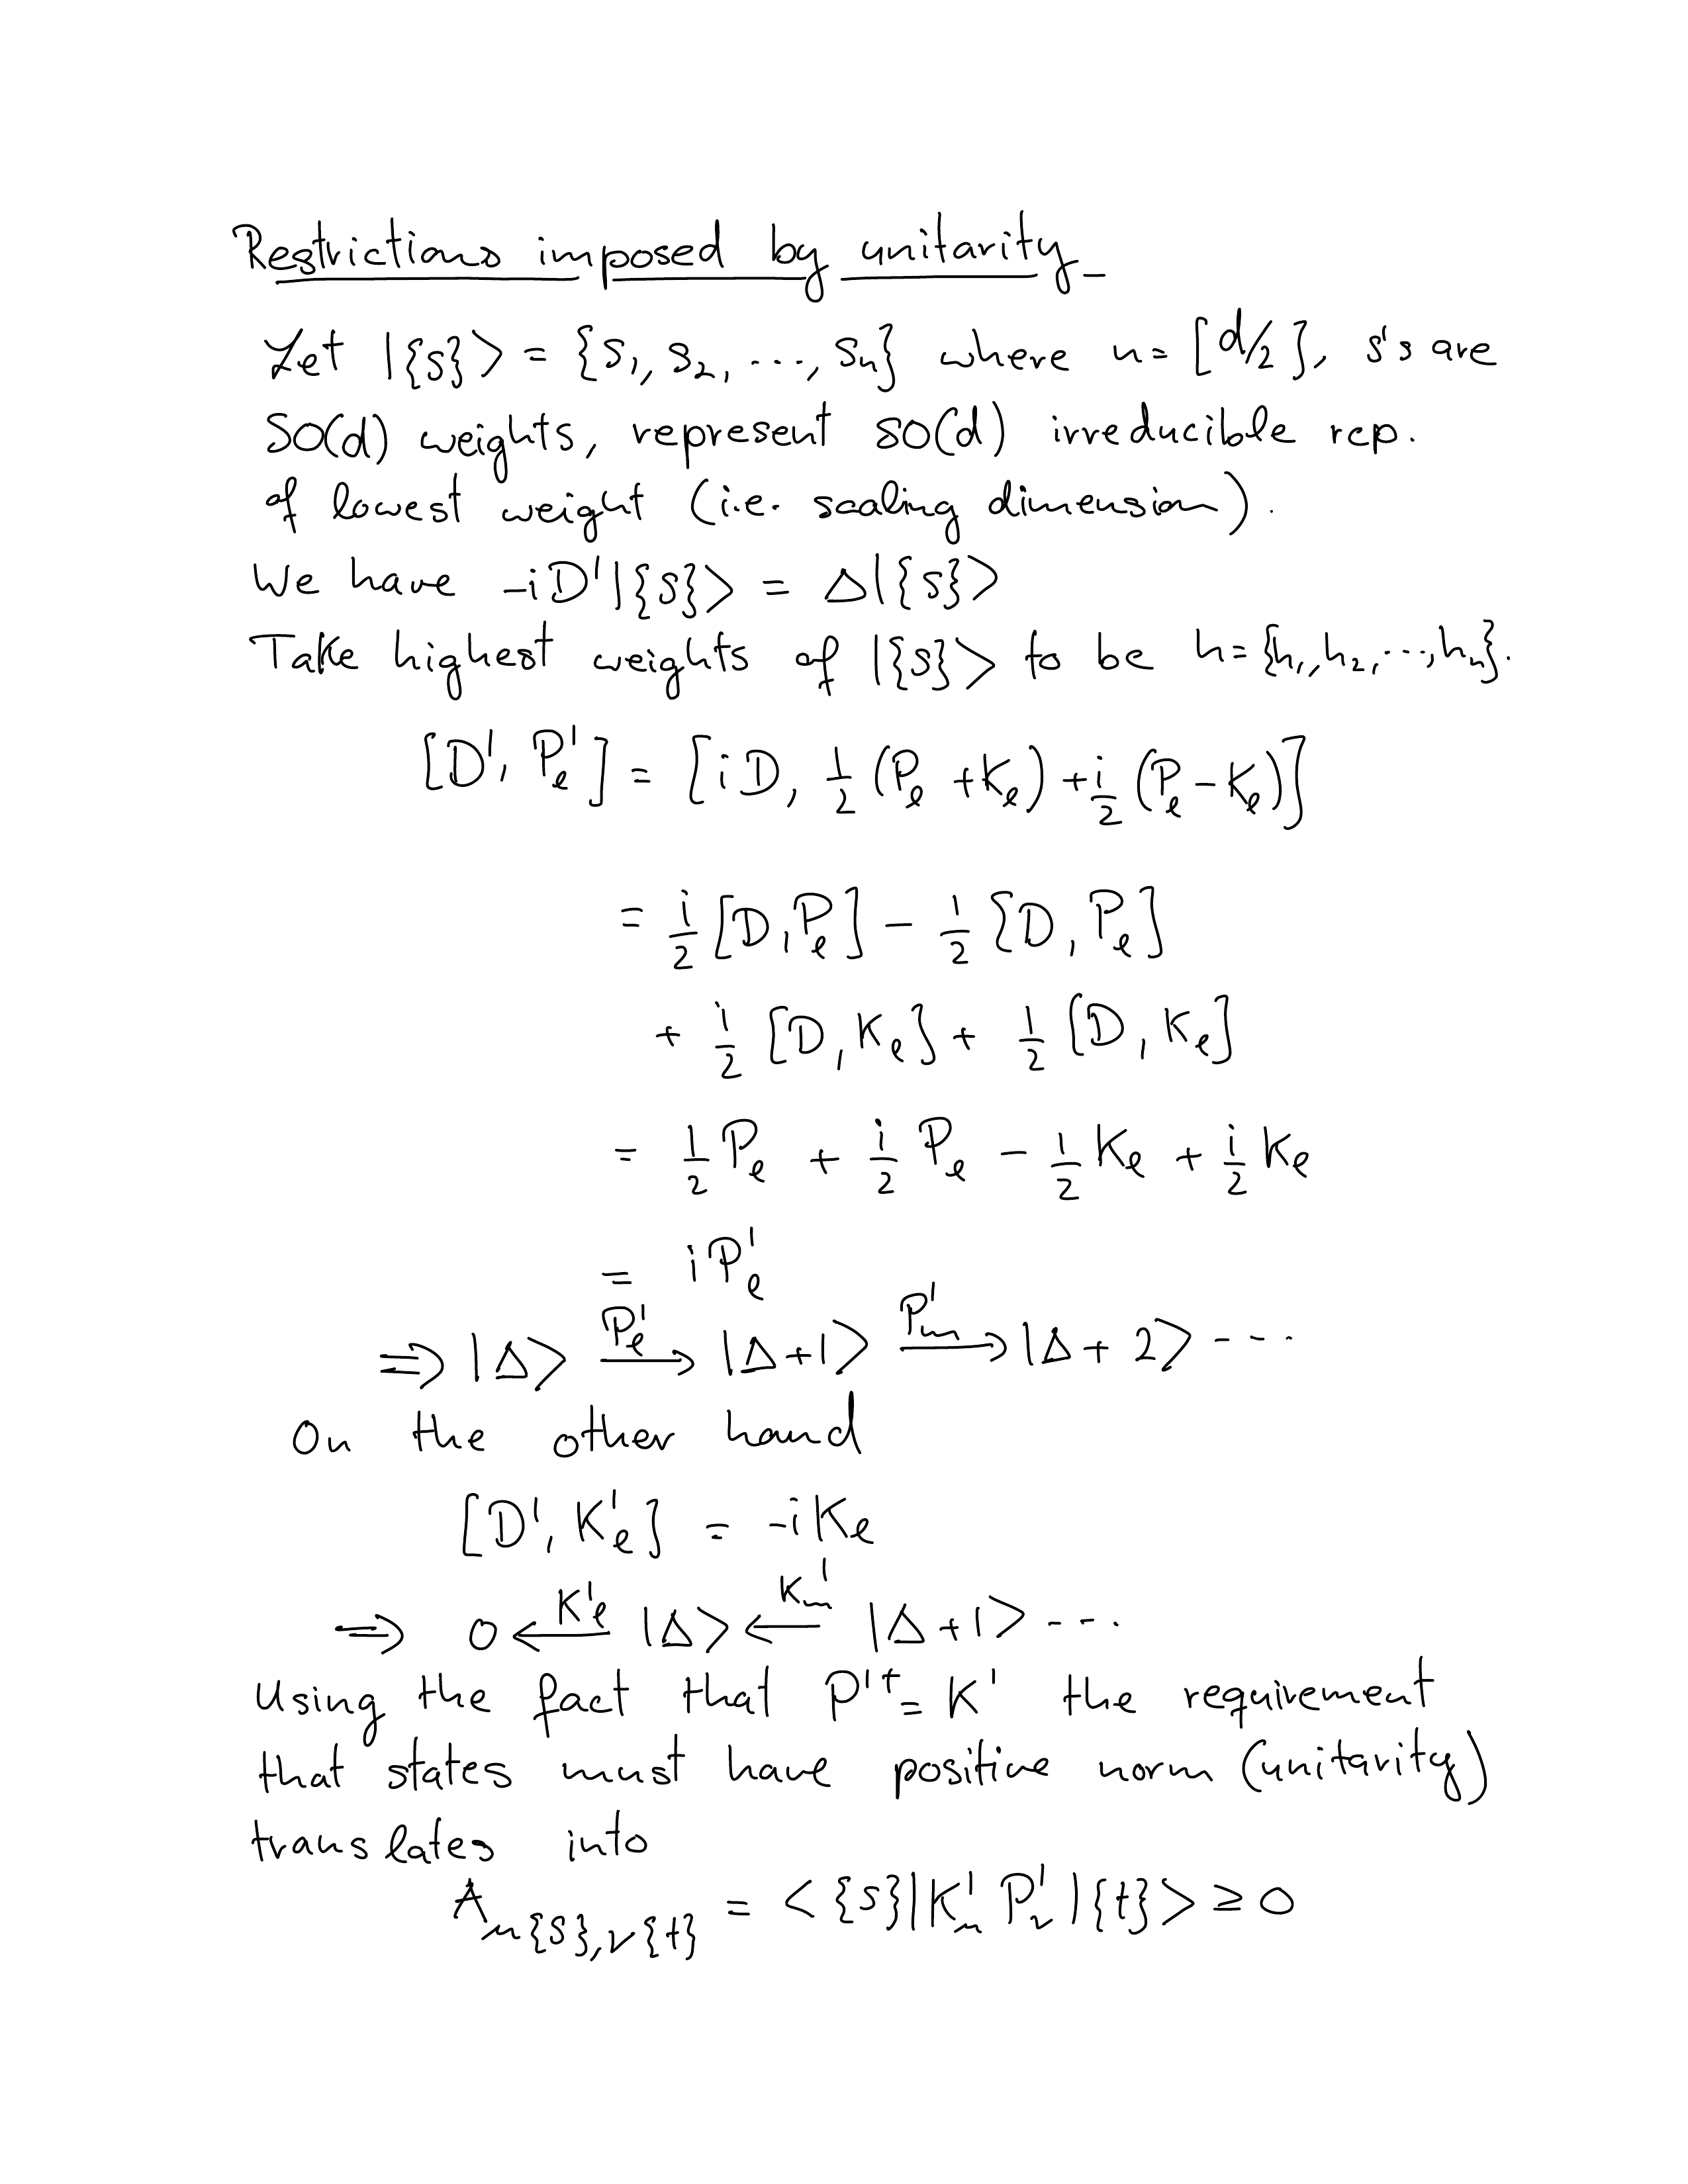 Restrictions imposed by unitarity
Let |{s}> = {s₁, s₂, ..., sₙ} where n = [d/2], s's are
SO(d) weights, represent SO(d) irreducible rep.
of lowest weight (i.e. scaling dimension).
We have -iD'|{s}> = Δ|{s}>
Take highest weights of |{s}> to be h = {h₁, h₂, ..., hₙ}.
[D', P'_e] = [iD, 1/2 (P_e + K_e) + i/2 (P_e - K_e)]
= i/2 [D, P_e] - 1/2 [D, P_e]
+ i/2 [D, K_e] + 1/2 [D, K_e]
= 1/2 P_e + i/2 P_e - 1/2 K_e + i/2 K_e
= iP'_e
⇒ |Δ> —P'_e→ |Δ+1> —P'_m→ |Δ+2> ---
On the other hand
[D', K'_e] = -iK_e
⇒ 0 ←K'_e— |Δ> ←K'_m— |Δ+1> ---
Using the fact that P'† = K' the requirement
that states must have positive norm (unitarity)
translates into
A_μ{s},ν{t} = <{s}|K'_μ P'_ν|{t}> ≥ 0